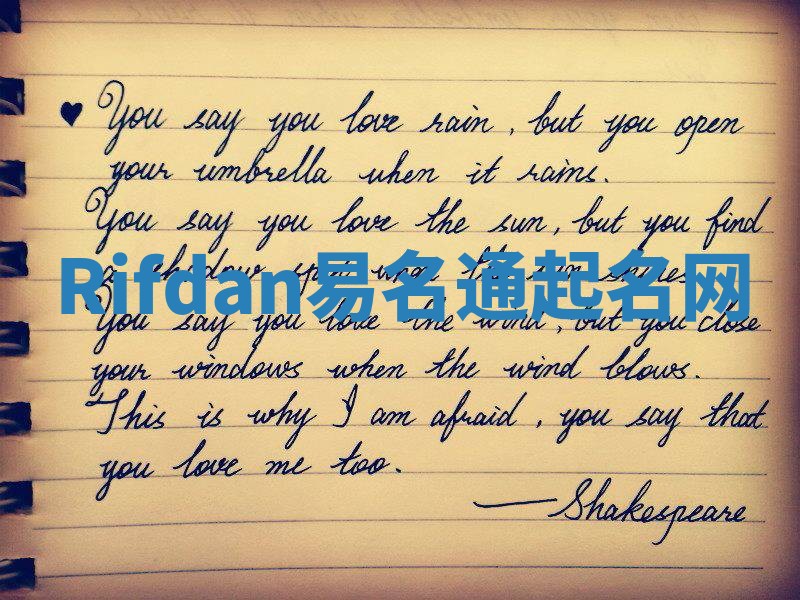 ♥ You say you love rain, but you open
your umbrella when it rains.
You say you love the sun, but you find
a shadow spot when the sun shines.
Rifdan易名通起名网
You say you love the wind, but you close
your windows when the wind blows.
This is why I am afraid, you say that
you love me too.
—Shakespeare